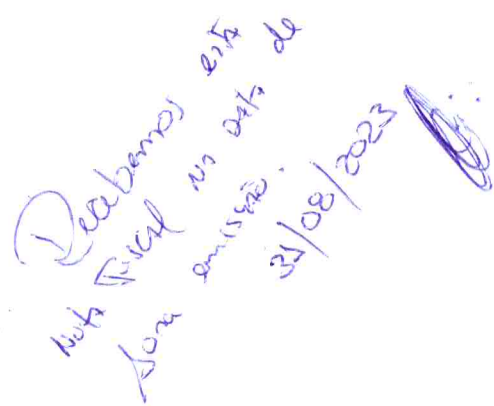 Recebemos esta
Nota Fiscal na data de
sua emissão.
31/08/2023